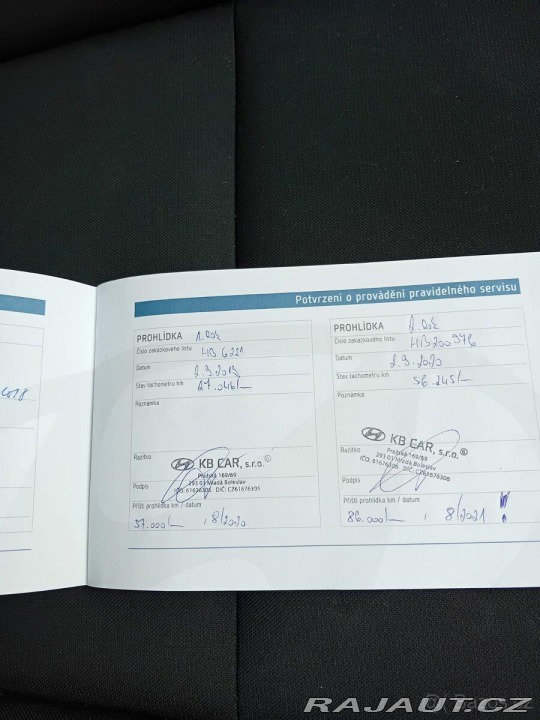 Potvrzení o provádění pravidelného servisu
PROHLÍDKA 1. Rok
Číslo zakázkového listu HB 6221
Datum 2.9.2019
Stav tachometru km 27.046/—
Poznámka
Razítko KB CAR, s.r.o.
Pražská 169/69
293 01 Mladá Boleslav
IČO: 61676306 DIČ: CZ61676306
Podpis
Příští prohlídka km / datum
57.000/— , 8/2020
PROHLÍDKA 2. Rok
Číslo zakázkového listu HB200976
Datum 2.9.2020
Stav tachometru km 56.245/—
Poznámka
Razítko KB CAR, s.r.o.®
Pražská 169/69
293 01 Mladá Boleslav
IČO: 61676306 DIČ: CZ61676306
Podpis
Příští prohlídka km / datum
86.000/— , 8/2021
RAJAUT.CZ